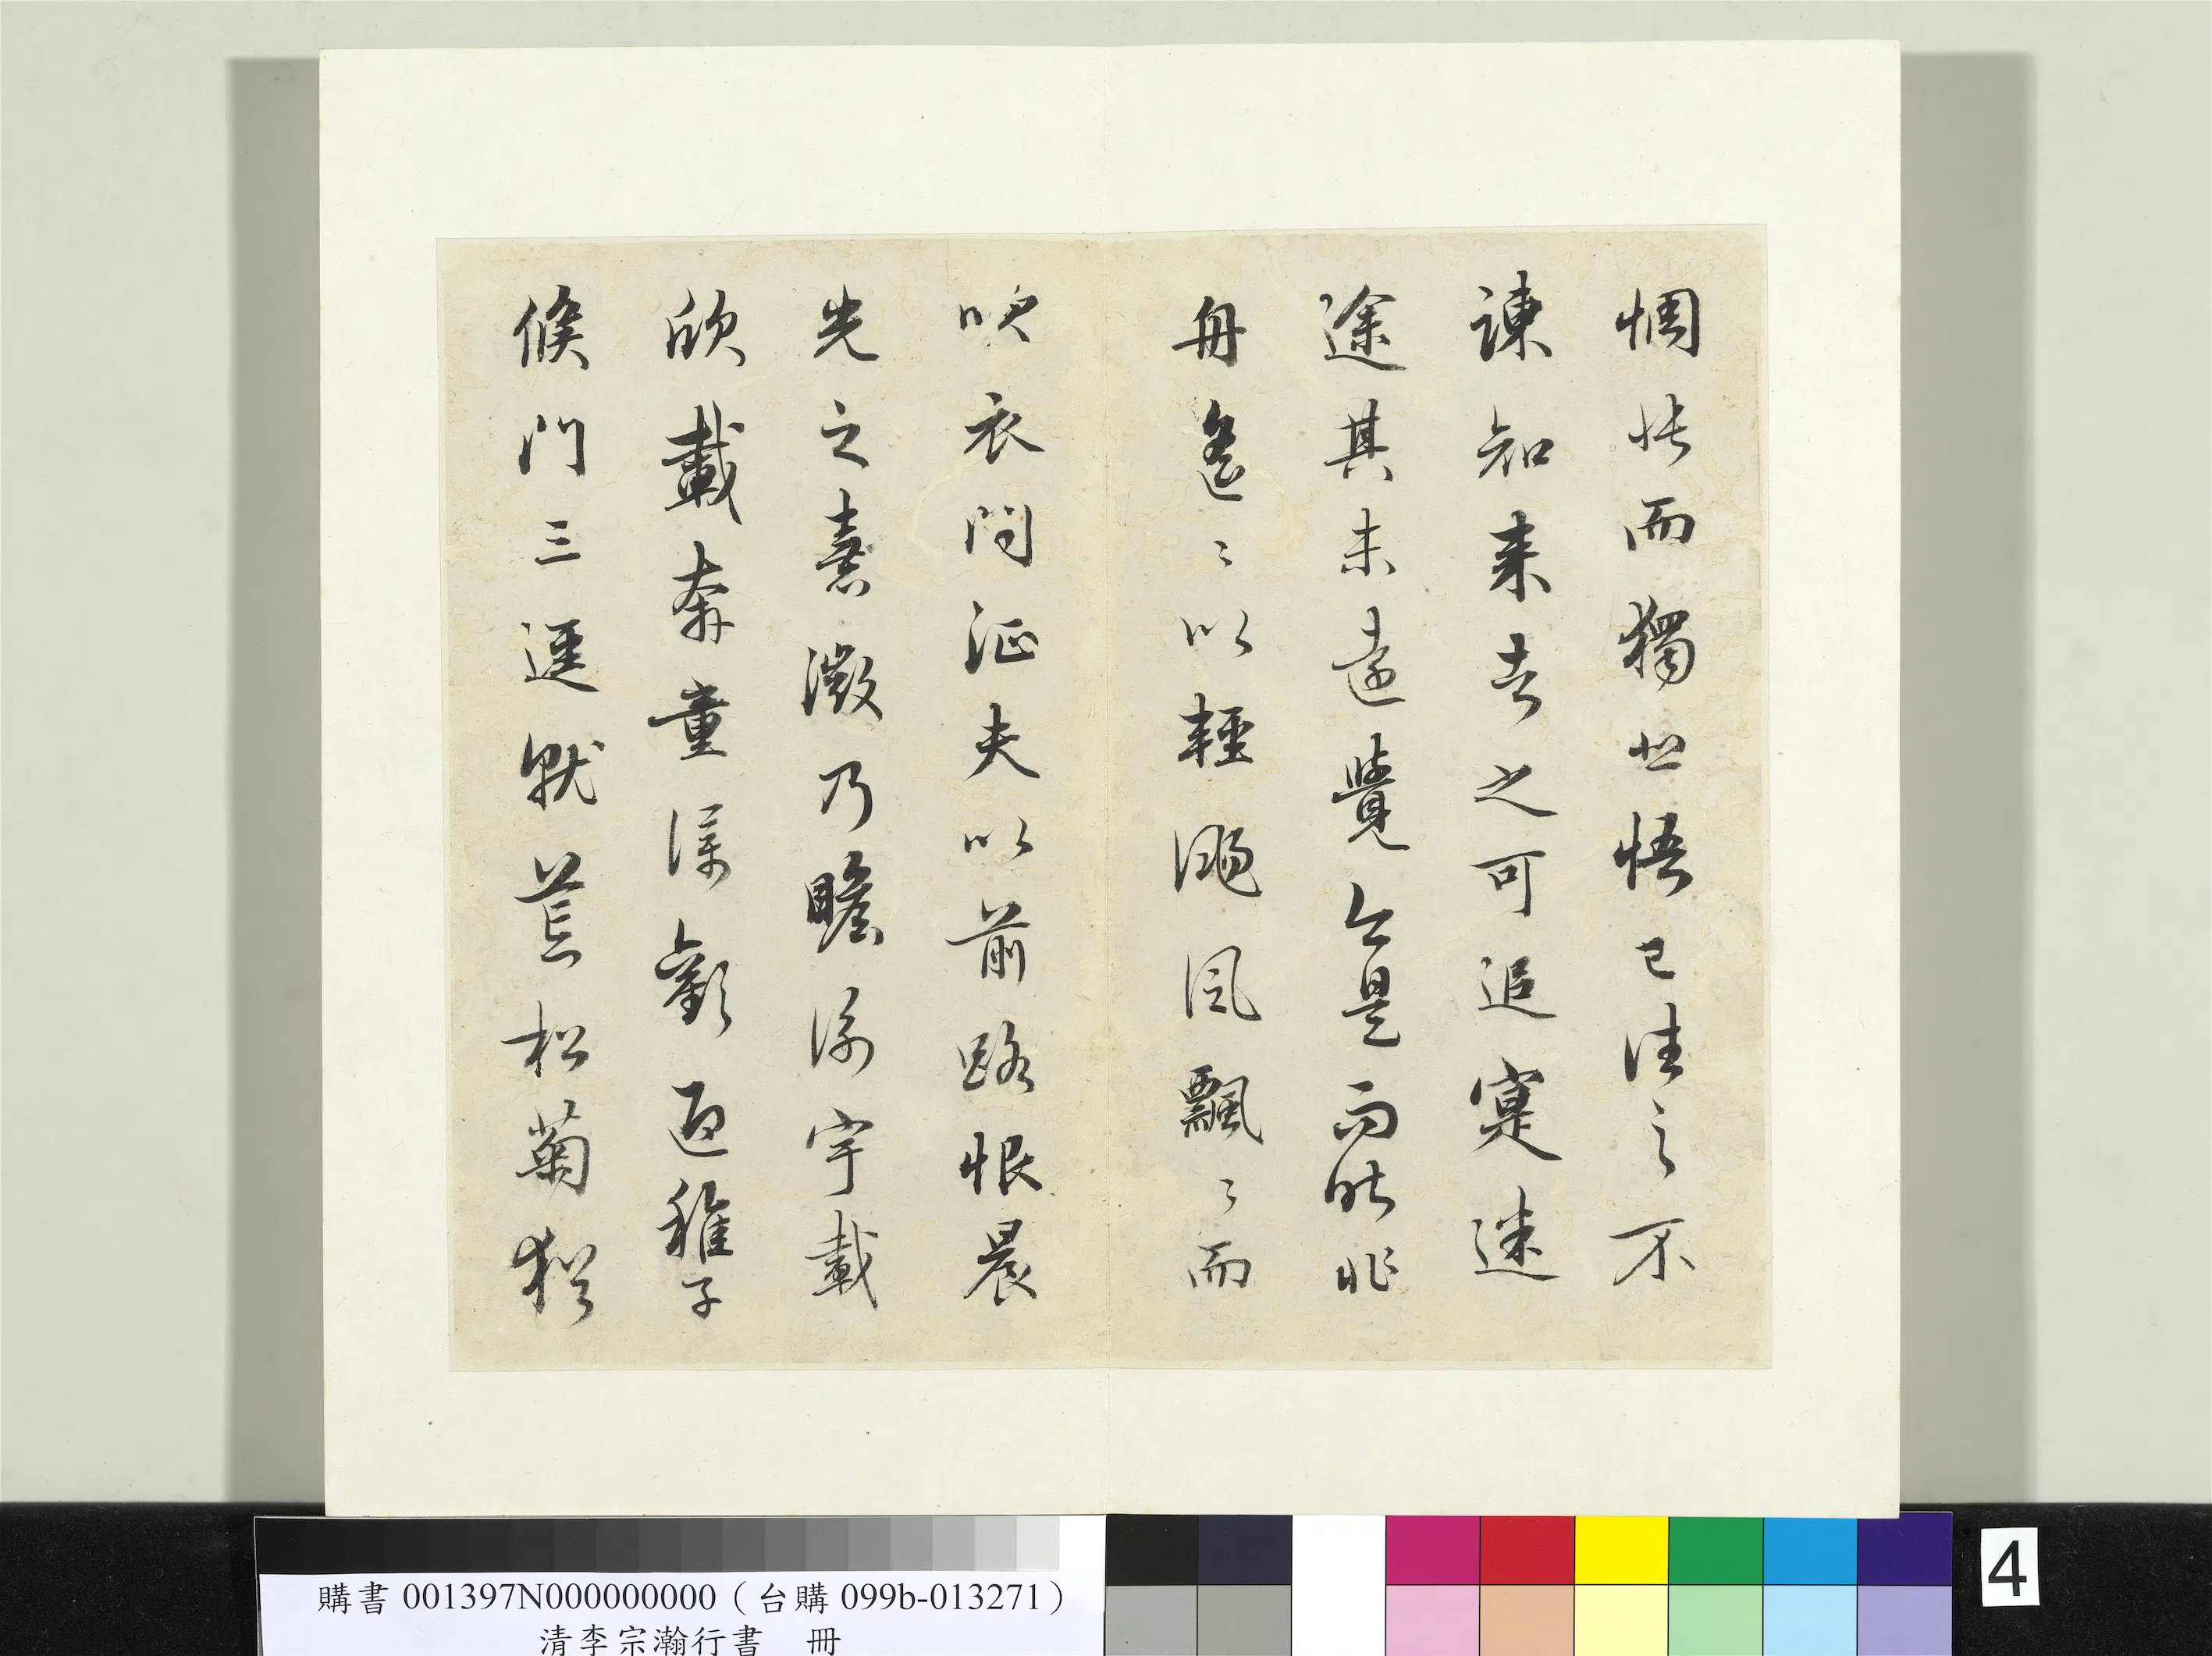 惆悵而獨悲悟已往之不
諫知来者之可追寔迷
途其未遠覺今是而昨非
舟遙〻以輕颺風飄〻而
吹衣問征夫以前路恨晨
光之熹微乃瞻衡宇載
欣載奔童僕歡迎稚子
候門三逕就荒松菊猶
購書 001397N000000000（台購 099b-013271）
清李宗瀚行書　冊
4